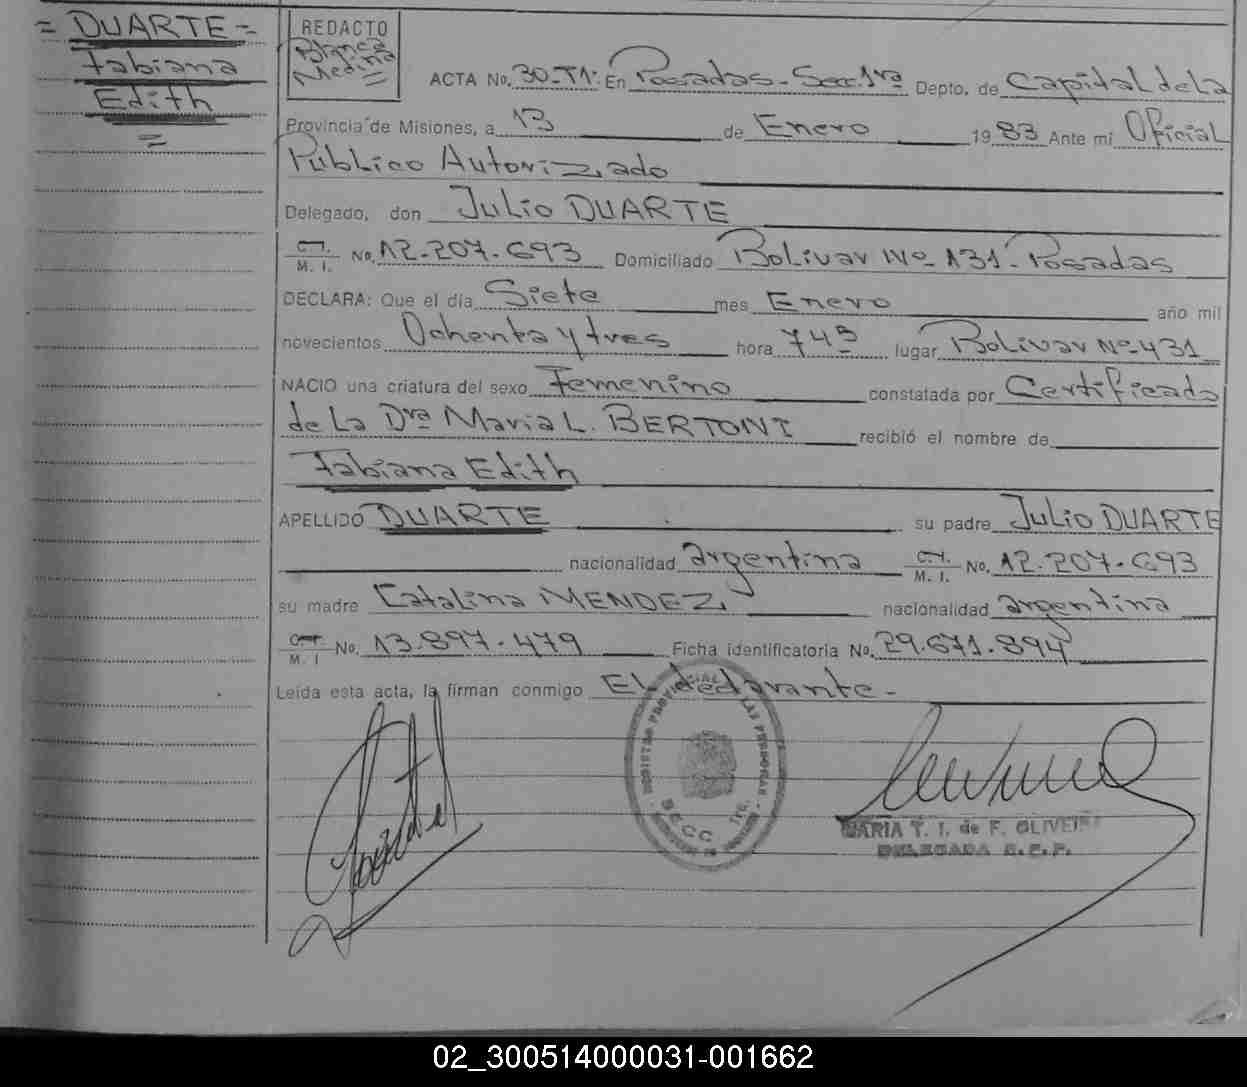 = DUARTE =
Fabiana
Edith
=
REDACTO
Blanca
Medina
ACTA No. 30-T1: En Posadas-Secc.1ra Depto. de Capital de La
Provincia de Misiones, a 13 de Enero 1983 Ante mi Oficial
Público Autorizado
Delegado, don Julio DUARTE
M. I. No. 12.207.693 Domiciliado Bolivar Nº 131-Posadas
DECLARA: Que el día Siete mes Enero año mil
novecientos Ochenta y tres hora 745 lugar Bolivar Nº 431
NACIO una criatura del sexo Femenino constatada por Certificado
de La Dra Maria L. BERTONI recibió el nombre de
Fabiana Edith
APELLIDO DUARTE su padre Julio DUARTE
nacionalidad argentina C.I. M. I. No. 12.207.693
su madre Catalina MENDEZ nacionalidad argentina
M. I No. 13.897.479 Ficha identificatoria No. 29.671.894
Leída esta acta, la firman conmigo El declarante-
REGISTRO PROVINCIAL DE LAS PERSONAS
SECC. 1ra.
MARIA T. I. de F. OLIVEIRA
DELEGADA R.P.P.
02_300514000031-001662